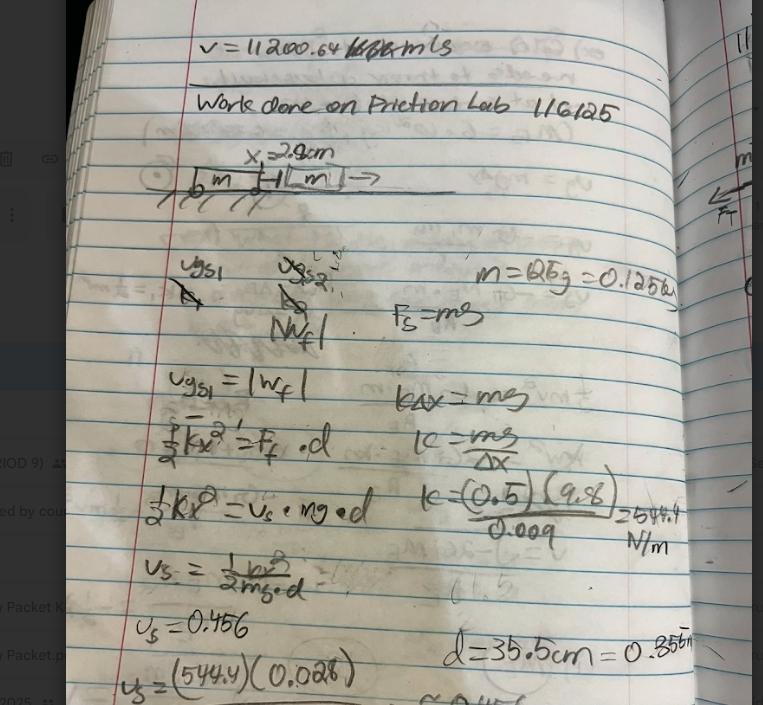 v = 11200.64 m/s
Work done on Friction Lab 1/6/25
x = 2.8cm
m m
Ugs1 Ugs2
m = 125g = 0.125kg
|Wf|
Fs = mg
Ugs1 = |Wf|
kΔx = mg
1/2 kx² = Ff · d
k = mg/Δx
1/2 kx² = us · mg · d
k = (0.5)(9.8)/0.009 = 544.4 N/m
us = 1/2 kx²/mg·d
us = 0.456
d = 35.5cm = 0.355m
us = (544.4)(0.028)